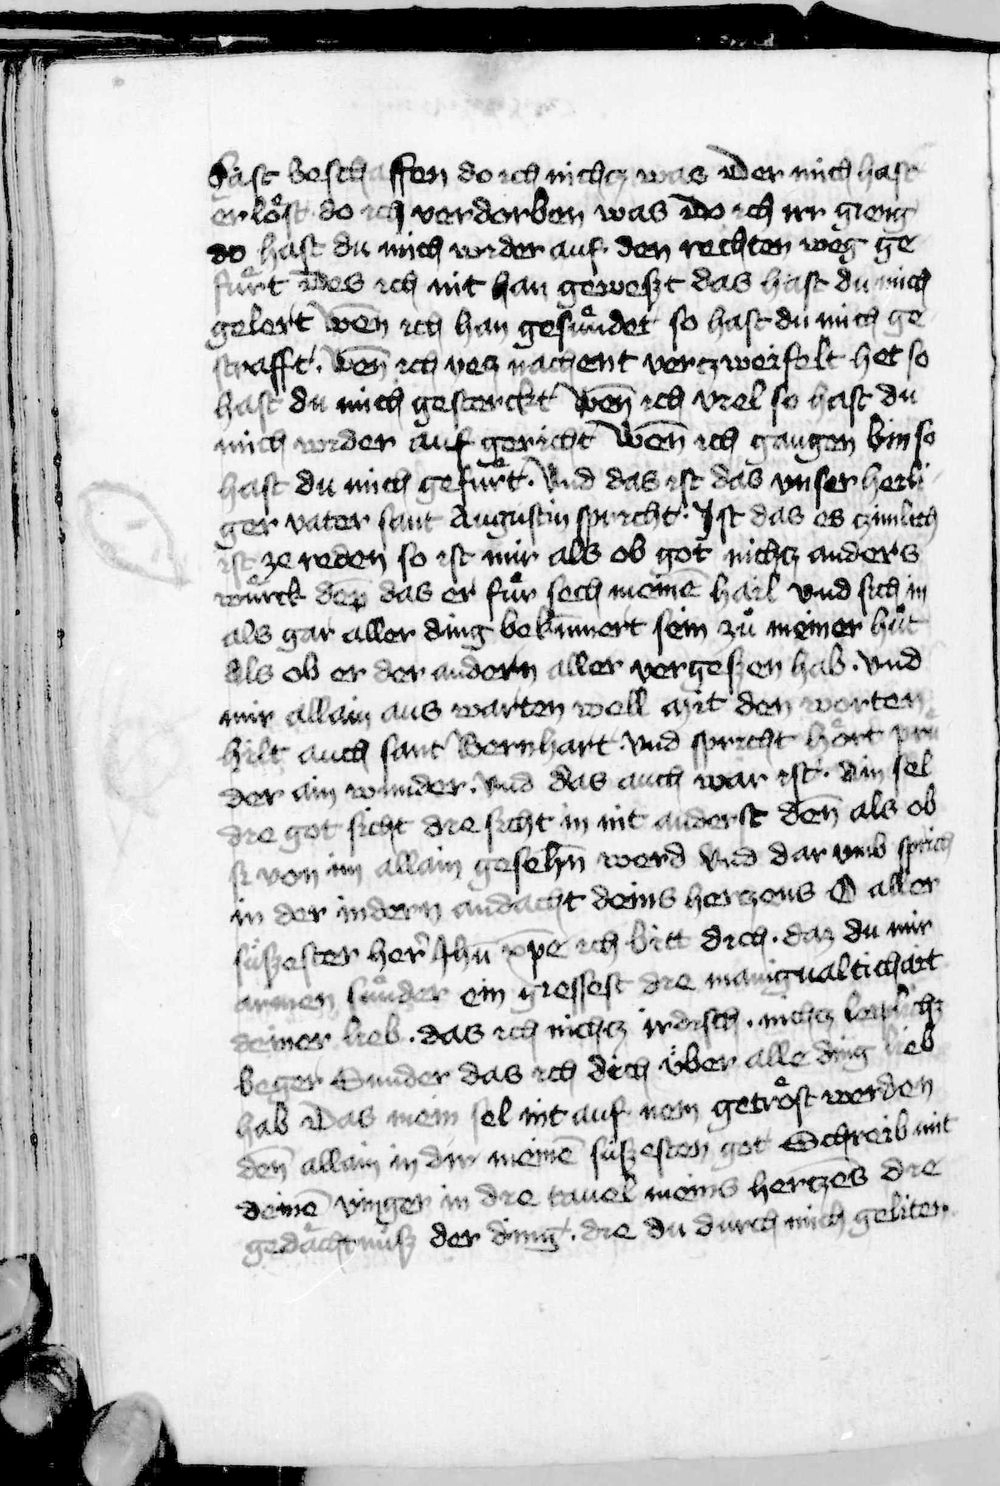 hast beschaffen do ich nichcz was Der mich hast
erlöst do ich verdorben was Do ich irr gieng
do hast du mich wider auf den rechten weg ge
fuͤrt Des ich nit han gewest das hast du mich
gelert Wen̄ ich han gesuͤndet so hast du mich ge
strafft. Wen̄ ich yecz nachent verczweifelt het so
hast du mich gesterckt Wen̄ ich viel so hast du
mich wider auf gericht Wen̄ ich gangen bin so
hast du mich gefuͤrt. Vnd das ist das vnser heili
ger vater sant Augustin spricht. Ist das es czimlich
ist ze reden so ist mir als ob got nichcz anders
wuͤrck den̄ das er fuͤr sech meinē hail vnd sich in
als gar aller ding bekūmert sein zuͦ meiner huͦt
Als ob er der andern aller vergeszen hab. Vnd
mir allain aus warten well Mit den worten
hilt auch sant Bernhart vnd spricht hoͤrt prü
der ain wunder. vnd das auch war ist. Ain sel
die got sicht die sicht in nit anderst den̄ als ob
si von im allain gesehn̄ werd Vnd dar vmb sprich
in der indern andacht deins herczens O aller
süszester her Jhū xp̄e ich bitt dich. daz du mir
armen suͤnder ein giessest die manigualtichait
deiner lieb. das ich nichcz irdisch. nichcz leiplichz
beger Sunder das ich dich über alle ding lieb
hab Das mein sel nit auf nem getroͤst werden
den̄ allain in dir meinē süszesten got Schreib mit
deinē vinger in die tauel meins herczēs die
gedaͤchtnüsz der ding. die du durch mich geliten